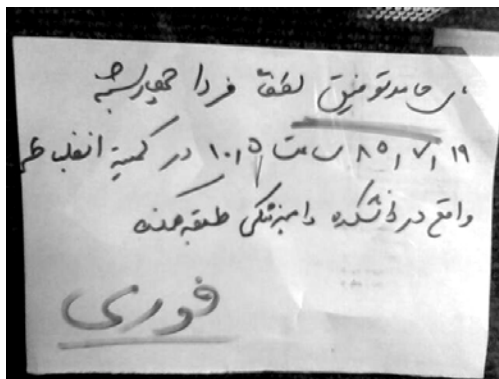 حامد توفیق لطفاً فردا چهارشنبه
۸۵٫۷٫۱۹ ساعت ۱۰٫۵ در کمیته انضباطی
واقع در دانشکده دامپزشکی طبقه همکف
فوری